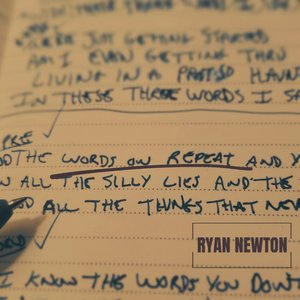 JUST GETTING STARTED
AM I EVEN GETTING THRU
LIVING IN A PAST SO HAUN
IN THESE THREE WORDS I SA
PRE
THE WORDS ON REPEAT AND Y
ALL THE SILLY LIES AND THE
ALL THE THINGS THAT NEV
RYAN NEWTON
I KNOW THE WORDS YOU DON'T